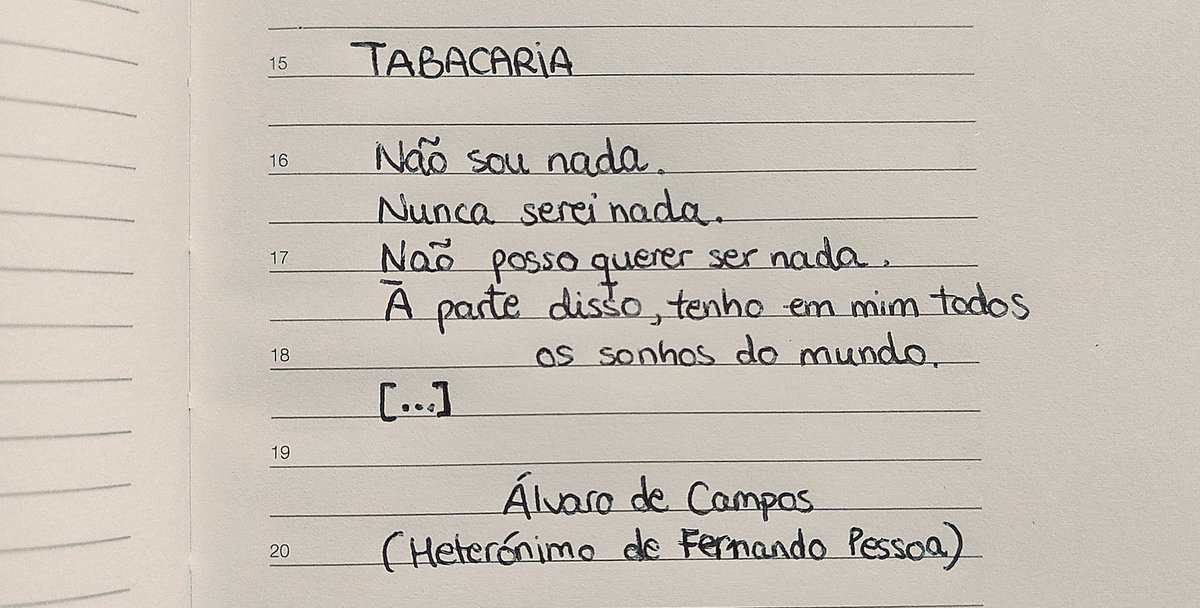 15 TABACARIA
16 Não sou nada.
Nunca serei nada.
17 Não posso querer ser nada.
À parte disto, tenho em mim todos
18 os sonhos do mundo.
[...]
19
Álvaro de Campos
20 (Heterónimo de Fernando Pessoa)